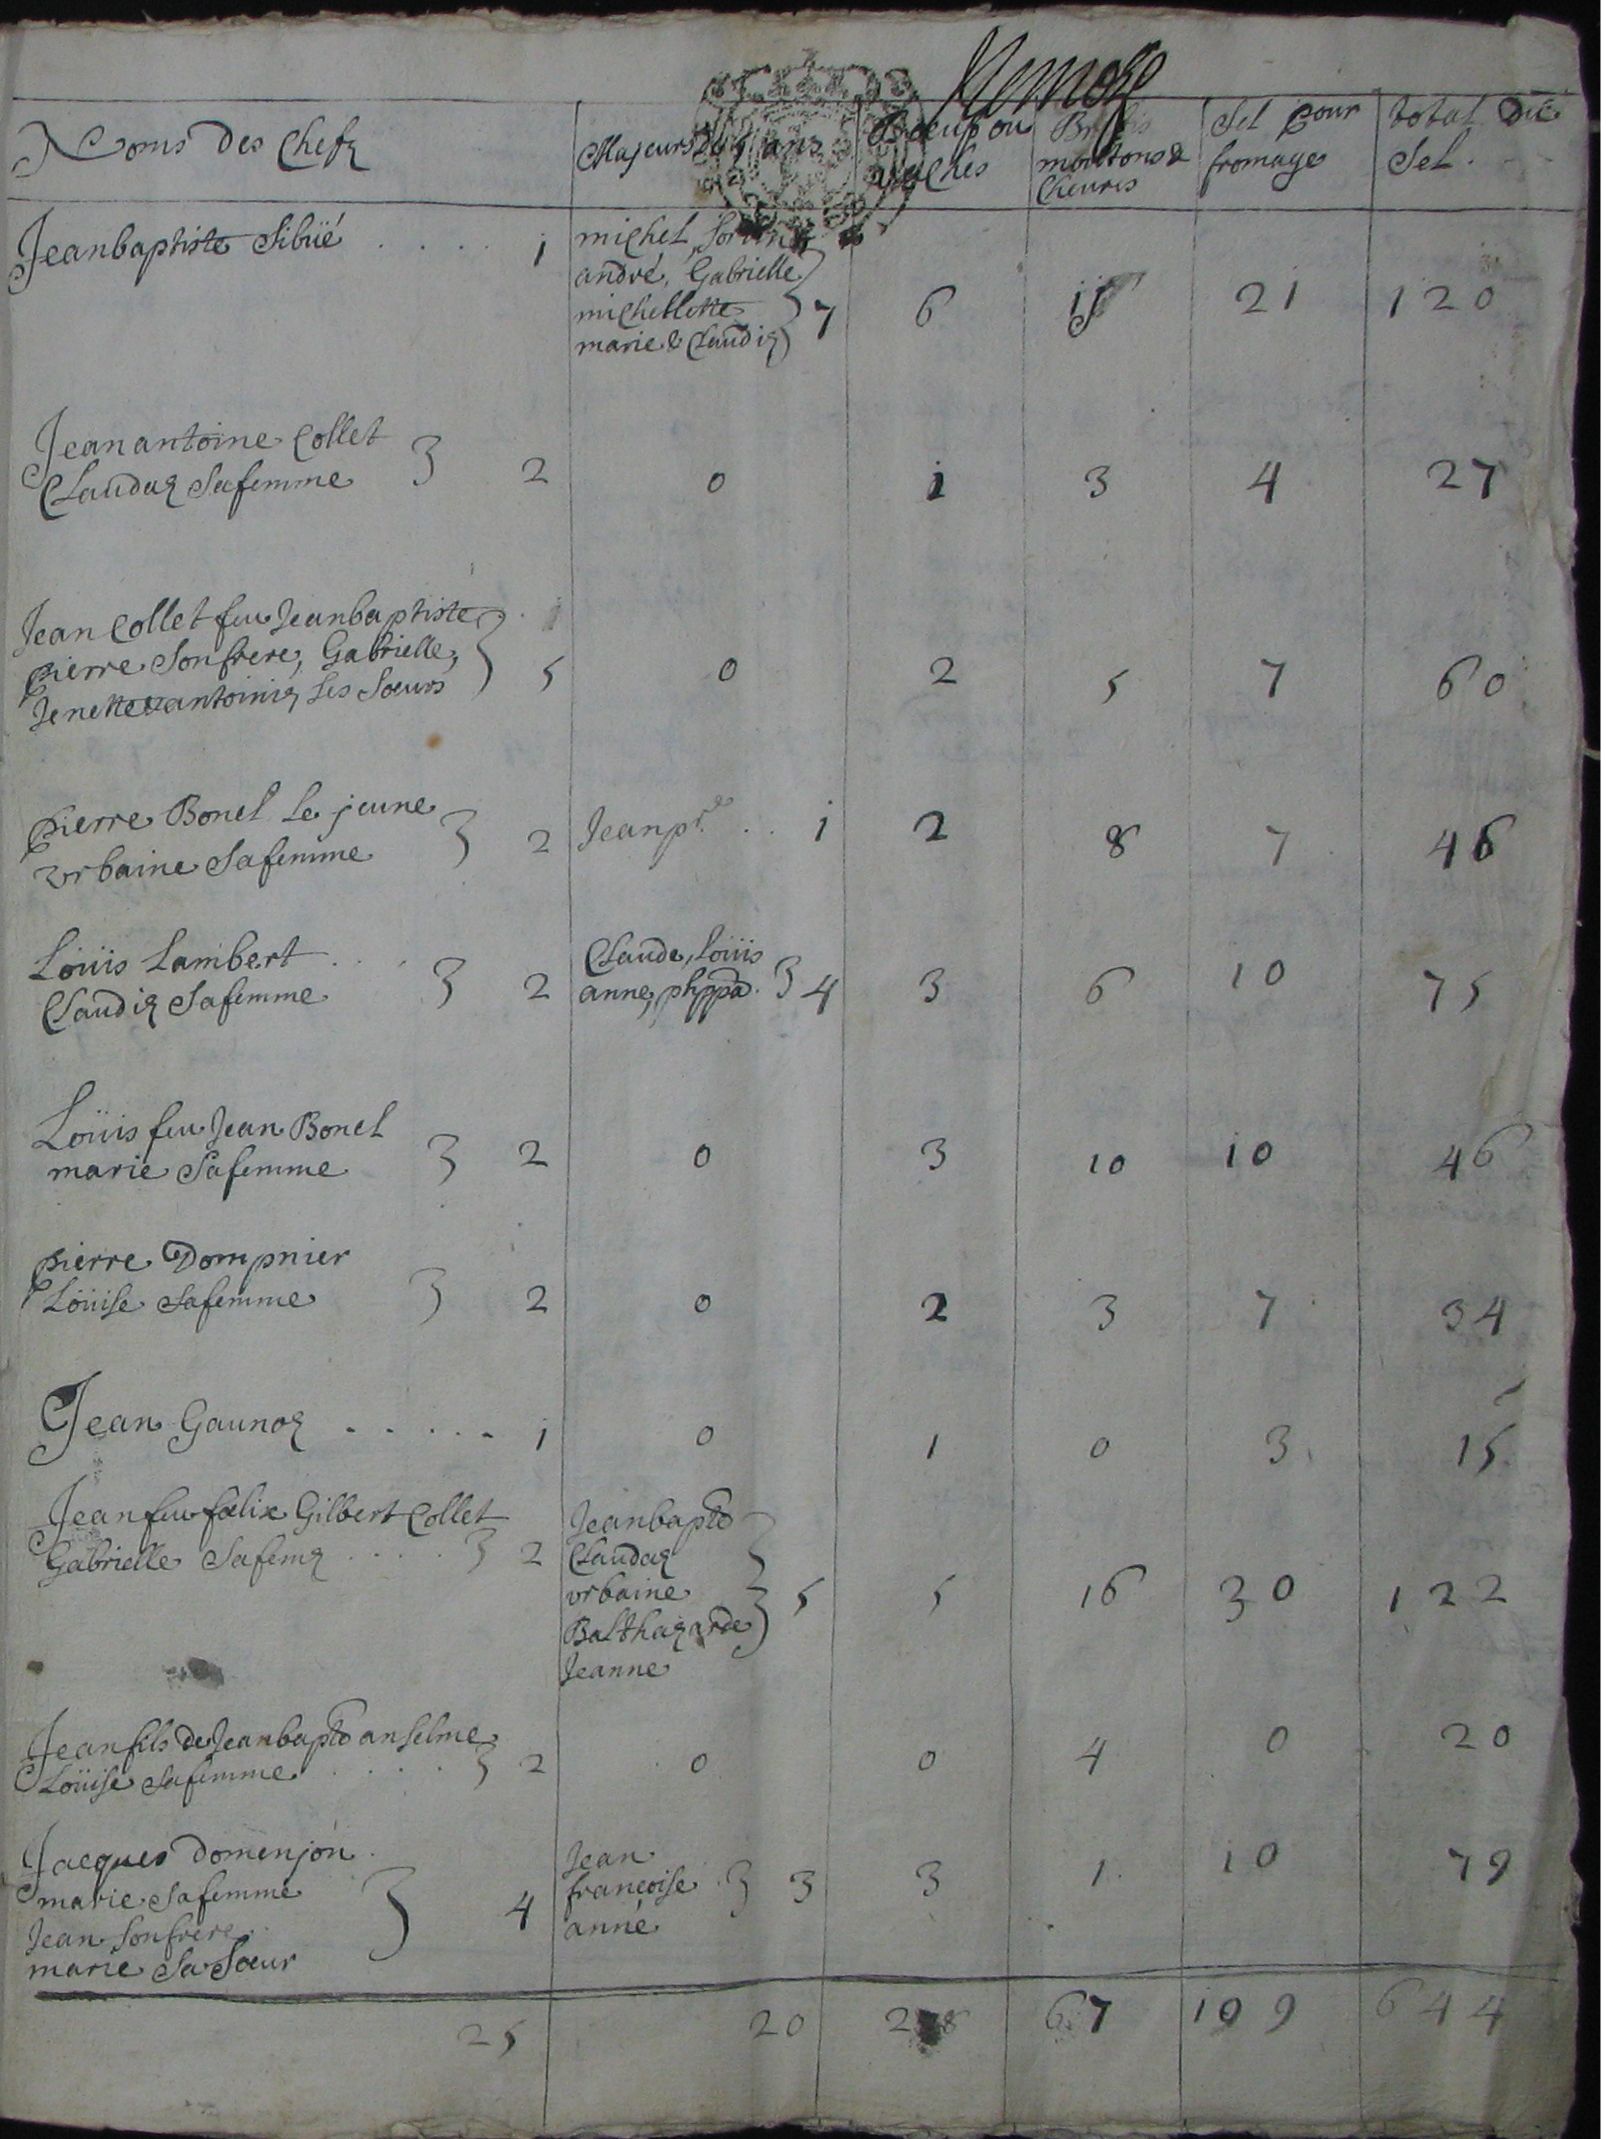 Noms Des Chefz | Majeurs De 5 ans | Boeufs ou vaches | Brebis moutons & Cheures | Sel pour fromage | total Du Sel.
Jeanbaptiste Sibüé . . . . 1 | michel,
andré, Gabrielle
michellette
marie & Claudiq } 7 | 6 | 11 | 21 | 120
Jeanantoine Collet
Claudaz Safemme } 2 | 0 | 1 | 3 | 4 | 27
Jean Collet feu Jeanbaptiste
pierre Sonfrere, Gabrielle,
Jenette & antoiniq Ses Soeurs } 5 | 0 | 2 | 5 | 7 | 60
pierre Bonel Le jeune
vrbaine Safemme } 2 | Jeanpre . . 1 | 2 | 8 | 7 | 46
Loüis Lambert . . .
Claudiq Safemme } 2 | Claude, Loüis
anne, phppa. } 4 | 3 | 6 | 10 | 75
Loüis feu Jean Bonel
marie Safemme } 2 | 0 | 3 | 10 | 10 | 46
pierre Dompnier
Loüise Safemme } 2 | 0 | 2 | 3 | 7 | 34
Jean Gaunoz . . . . . 1 | 0 | 1 | 0 | 3 | 15
Jean feu foelix Gilbert Collet
Gabrielle Safemq . . . . } 2 | Jeanbapte
Claudaz
vrbaine
Balthazarde
Jeanne } 5 | 5 | 16 | 30 | 122
Jean fils de Jeanbapte anselme
Loüise Safemme . . . . } 2 | 0 | 0 | 4 | 0 | 20
Jacques Domenjon
marie Safemme
Jean Sonfrere
marie Sa Soeur } 4 | Jean
francoise
anne } 3 | 3 | 1 | 10 | 79
25 | 20 | 28 | 67 | 109 | 644